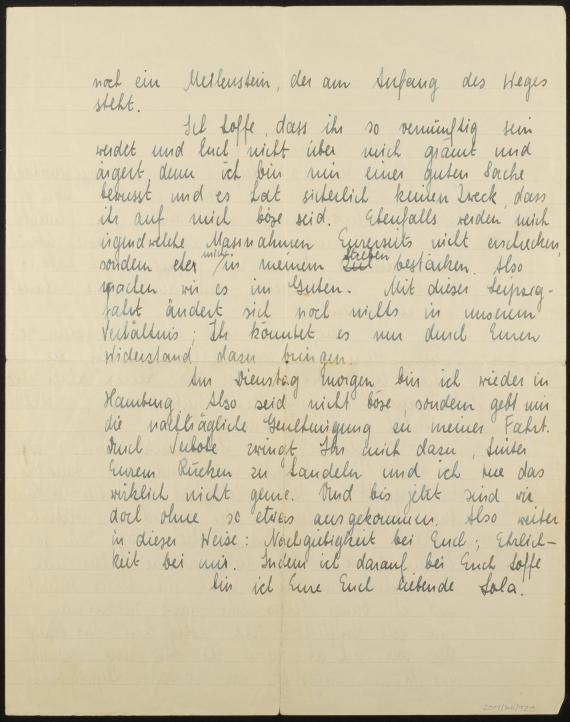 noch ein Meilenstein, der am Anfang des Weges
steht.
Ich hoffe, dass ihr so vernünftig sein
werdet und Euch nicht über mich grämt und
ärgert, denn ich bin mir einer guten Sache
bewusst und es hat sicherlich keinen Zweck, dass
ihr auf mich böse seid. Ebenfalls werden mich
irgendwelche Massnahmen Eurerseits nicht erschrecken,
sondern eher mich in meinem Streben bestärken. Also
machen wir es im Guten. Mit dieser Leipzig-
fahrt ändert sich noch nichts in unserem
Verhältnis; Ihr könntet es nur durch Euren
Widerstand dazu bringen.
Am Dienstag Morgen bin ich wieder in
Hamburg. Also seid nicht böse, sondern gebt mir
die nachträgliche Genehmigung zu meiner Fahrt.
Durch Verbote zwingt Ihr mich dazu, hinter
Eurem Rücken zu handeln und ich tue das
wirklich nicht gerne. Und bis jetzt sind wir
doch ohne so etwas ausgekommen. Also weiter
in dieser Weise: Nachgiebigkeit bei Euch; Ehrlich-
keit bei mir. Indem ich darauf bei Euch hoffe
bin ich Eure Euch liebende Lola.